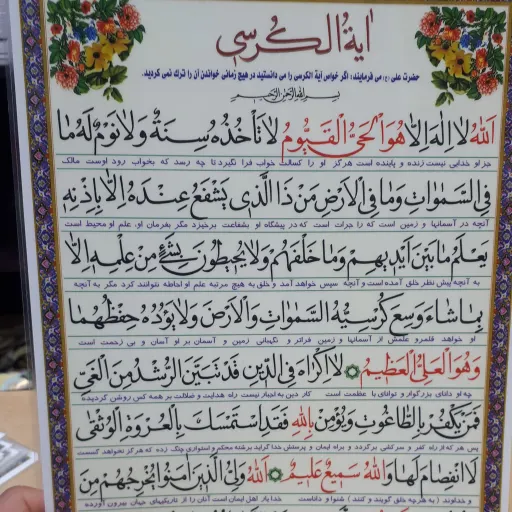 آیة الکرسی
حضرت علی (ع) می فرمایند: اگر خواص آیة الکرسی را می دانستید در هیچ زمانی خواندن آن را ترك نمی کردید.
بِسْمِ اللهِ الرَّحْمٰنِ الرَّحِيْمِ
اَللهُ لا اِلٰهَ اِلاّ هُوَ الْحَيُّ الْقَيُّومُ لا تَأْخُذُهُ سِنَةٌ وَلا نَوْمٌ لَهُ مَا
جز او خدایی نیست زنده و پاینده است هرگز او را کسالت خواب فرا نگیرد تا چه رسد که بخواب رود اوست مالک
فِي السَّمٰوَاتِ وَمَا فِي الْاَرْضِ مَنْ ذَا الَّذي يَشْفَعُ عِنْدَهُ اِلاّ بِاِذْنِهِ
آنچه در آسمانها و زمین است که را جرات است که در پیشگاه او بشفاعت برخیزد مگر بفرمان او، علم او محیط است
يَعْلَمُ مَا بَيْنَ اَيْديهِمْ وَمَا خَلْفَهُمْ وَلا يُحيطُونَ بِشَيْءٍ مِنْ عِلْمِهِ اِلاّ
به آنچه پیش نظر خلق آمده است و آنچه سپس خواهد آمد و خلق به هیچ مرتبه علم او احاطه نتوانند کرد مگر به آنچه
بِمَا شَاءَ وَسِعَ كُرْسِيُّهُ السَّمٰوَاتِ وَالْاَرْضَ وَلا يَؤُدُهُ حِفْظُهُمَا
او خواهد قلمرو علمش از آسمانها و زمین فراتر و نگهبانی زمین و آسمان بر او آسان و بی زحمت است
وَهُوَ الْعَلِيُّ الْعَظيمُ لا اِكْرَاهَ فِي الدّينِ قَدْ تَبَيَّنَ الرُّشْدُ مِنَ الْغَيِّ
چه او دانای بزرگوار و توانای با عظمت است کار دین به اجبار نیست راه هدایت و ضلالت بر همه کس روشن گردیده
فَمَنْ يَكْفُرْ بِالطَّاغُوتِ وَيُؤْمِنْ بِاللهِ فَقَدِ اسْتَمْسَكَ بِالْعُرْوَةِ الْوُثْقٰى
پس هر که از راه کفر و سرکشی برگردد و براه ایمان و پرستش خدا گراید برشته محکم و استواری چنگ زده که هرگز نخواهد گسست
لاَ انْفِصَامَ لَهَا وَاللهُ سَميعٌ عَليمٌ اَللهُ وَلِيُّ الَّذينَ اٰمَنُوا يُخْرِجُهُمْ مِنَ
و خداوند (به هرچه خلق گویند و کنند) شنوا و داناست خدا یار اهل ایمان است آنان را از تاریکیهای جهان بیرون آورده